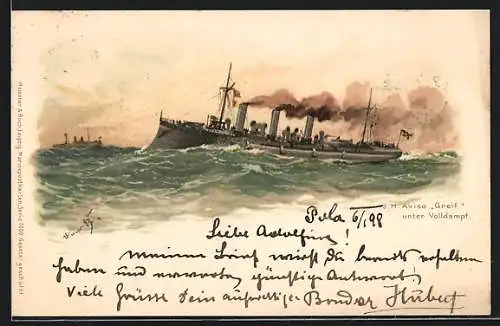 S.M. Aviso „Greif"
unter Volldampf.
Pola 6/1 98
Liebe Adolfine!
meinen Brief wirst Du bereits erhalten
haben und erwarte günstige Antwort!
Viele Grüsse Dein aufrichtiger Bruder Hubert
Meissner & Buch, Leipzig